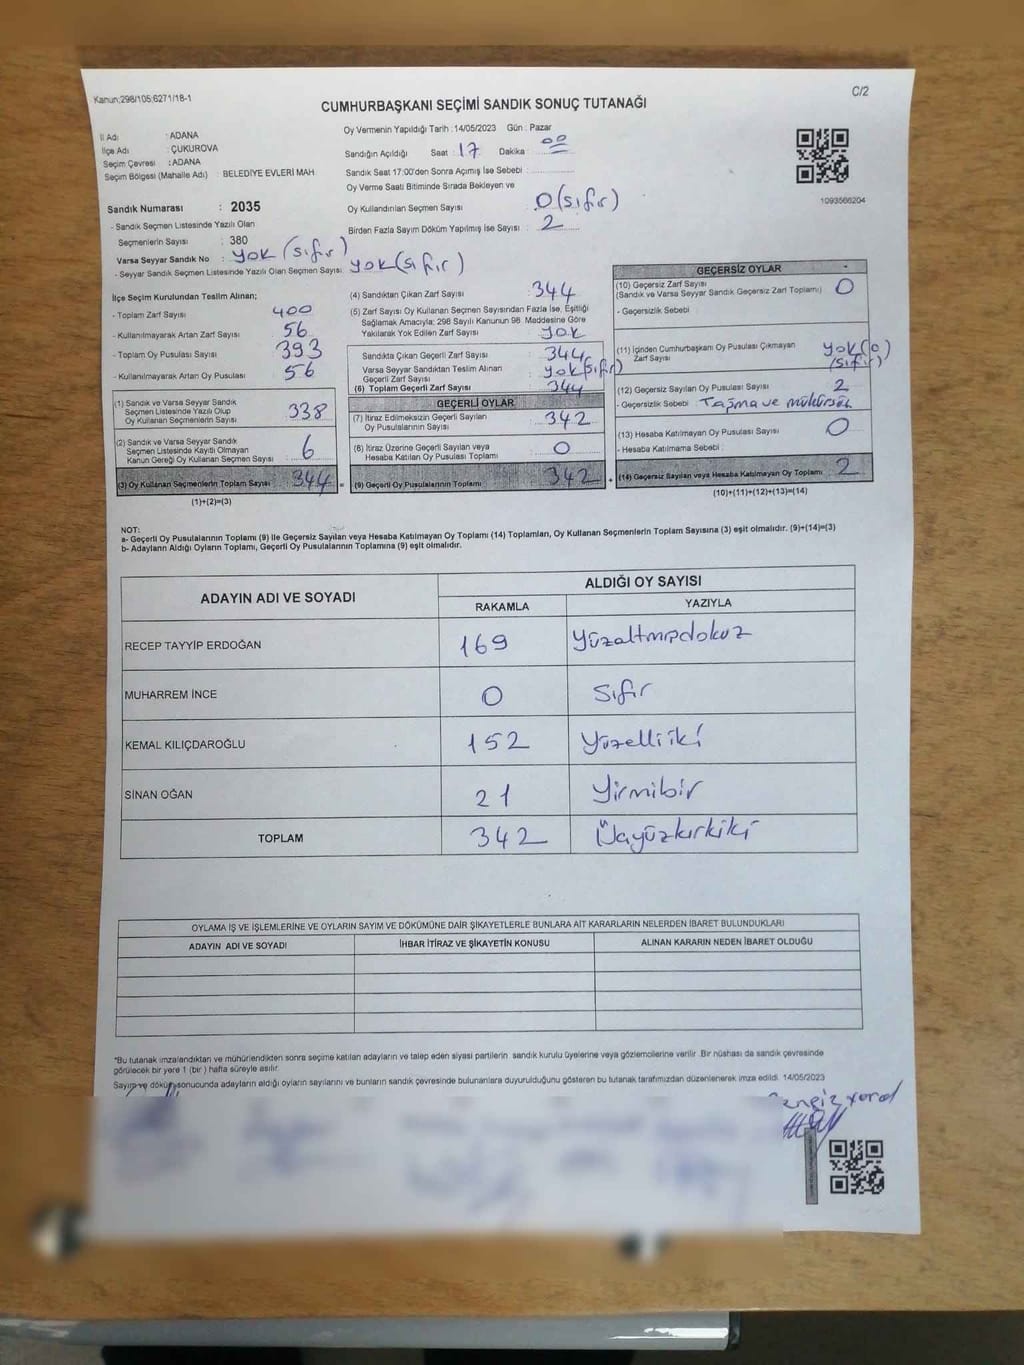 Kanun;298/105;6271/18-1
C/2
CUMHURBAŞKANI SEÇİMİ SANDIK SONUÇ TUTANAĞI
İl Adı : ADANA
İlçe Adı : ÇUKUROVA
Seçim Çevresi : ADANA
Seçim Bölgesi (Mahalle Adı) : BELEDİYE EVLERİ MAH
Oy Vermenin Yapıldığı Tarih : 14/05/2023 Gün : Pazar
Sandığın Açıldığı Saat : 17 Dakika : 00
Sandık Saat 17:00'den Sonra Açımış İse Sebebi :
Oy Verme Saati Bitiminde Sırada Bekleyen ve
Oy Kullandırılan Seçmen Sayısı : 0 (sıfır)
Birden Fazla Sayım Döküm Yapılmış İse Sayısı : 2
1093566204
Sandık Numarası : 2035
- Sandık Seçmen Listesinde Yazılı Olan
Seçmenlerin Sayısı : 380
Varsa Seyyar Sandık No : yok (sıfır)
- Seyyar Sandık Seçmen Listesinde Yazılı Olan Seçmen Sayısı: yok (sıfır)
İlçe Seçim Kurulundan Teslim Alınan;
- Toplam Zarf Sayısı 400
- Kullanılmayarak Artan Zarf Sayısı 56
- Toplam Oy Pusulası Sayısı 393
- Kullanılmayarak Artan Oy Pusulası 56
(1) Sandık ve Varsa Seyyar Sandık
Seçmen Listesinde Yazılı Olup
Oy Kullanan Seçmenlerin Sayısı 338
(2) Sandık ve Varsa Seyyar Sandık
Seçmen Listesinde Kayıtlı Olmayan
Kanun Gereği Oy Kullanan Seçmen Sayısı 6
(3) Oy Kullanan Seçmenlerin Toplam Sayısı 344 =
(1)+(2)=(3)
(4) Sandıktan Çıkan Zarf Sayısı : 344
(5) Zarf Sayısı Oy Kullanan Seçmen Sayısından Fazla İse, Eşitliği
Sağlamak Amacıyla; 298 Sayılı Kanunun 98. Maddesine Göre
Yakılarak Yok Edilen Zarf Sayısı : yok
Sandıkta Çıkan Geçerli Zarf Sayısı : 344
Varsa Seyyar Sandıktan Teslim Alınan
Geçerli Zarf Sayısı : yok (sıfır)
(6) Toplam Geçerli Zarf Sayısı : 344
GEÇERLİ OYLAR
(7) İtiraz Edilmeksizin Geçerli Sayılan
Oy Pusulalarının Sayısı : 342
(8) İtiraz Üzerine Geçerli Sayılan veya
Hesaba Katılan Oy Pusulası Toplamı : 0
(9) Geçerli Oy Pusulalarının Toplamı 342 +
GEÇERSİZ OYLAR
(10) Geçersiz Zarf Sayısı
(Sandık ve Varsa Seyyar Sandık Geçersiz Zarf Toplamı) : 0
- Geçersizlik Sebebi :
(11) İçinden Cumhurbaşkanı Oy Pusulası Çıkmayan
Zarf Sayısı : yok (0)
(sıfır)
(12) Geçersiz Sayılan Oy Pusulası Sayısı : 2
- Geçersizlik Sebebi : Taşma ve
(13) Hesaba Katılmayan Oy Pusulası Sayısı : 0
- Hesaba Katılmama Sebebi :
(14) Geçersiz Sayılan veya Hesaba Katılmayan Oy Toplamı : 2
(10)+(11)+(12)+(13)=(14)
NOT:
a- Geçerli Oy Pusulalarının Toplamı (9) İle Geçersiz Sayılan veya Hesaba Katılmayan Oy Toplamı (14) Toplamları, Oy Kullanan Seçmenlerin Toplam Sayısına (3) eşit olmalıdır. (9)+(14)=(3)
b- Adayların Aldığı Oyların Toplamı, Geçerli Oy Pusulalarının Toplamına (9) eşit olmalıdır.
ADAYIN ADI VE SOYADI
ALDIĞI OY SAYISI
RAKAMLA YAZIYLA
RECEP TAYYİP ERDOĞAN 169 Yüzaltmışdokuz
MUHARREM İNCE 0 Sıfır
KEMAL KILIÇDAROĞLU 152 Yüzelliiki
SİNAN OĞAN 21 Yirmibir
TOPLAM 342 Üçyüzkırkiki
OYLAMA İŞ VE İŞLEMLERİNE VE OYLARIN SAYIM VE DÖKÜMÜNE DAİR ŞİKAYETLERLE BUNLARA AİT KARARLARIN NELERDEN İBARET BULUNDUKLARI
ADAYIN ADI VE SOYADI İHBAR İTİRAZ VE ŞİKAYETİN KONUSU ALINAN KARARIN NEDEN İBARET OLDUĞU
*Bu tutanak imzalandıktan ve mühürlendikten sonra seçime katılan adayların ve talep eden siyasi partilerin sandık kurulu üyelerine veya gözlemcilerine verilir. Bir nüshası da sandık çevresinde
görülecek bir yere 1 (bir) hafta süreyle asılır.
Sayım ve döküm sonucunda adayların aldığı oyların sayılarını ve bunların sandık çevresinde bulunanlara duyurulduğunu gösteren bu tutanak tarafımızdan düzenlenerek imza edildi. 14/05/2023